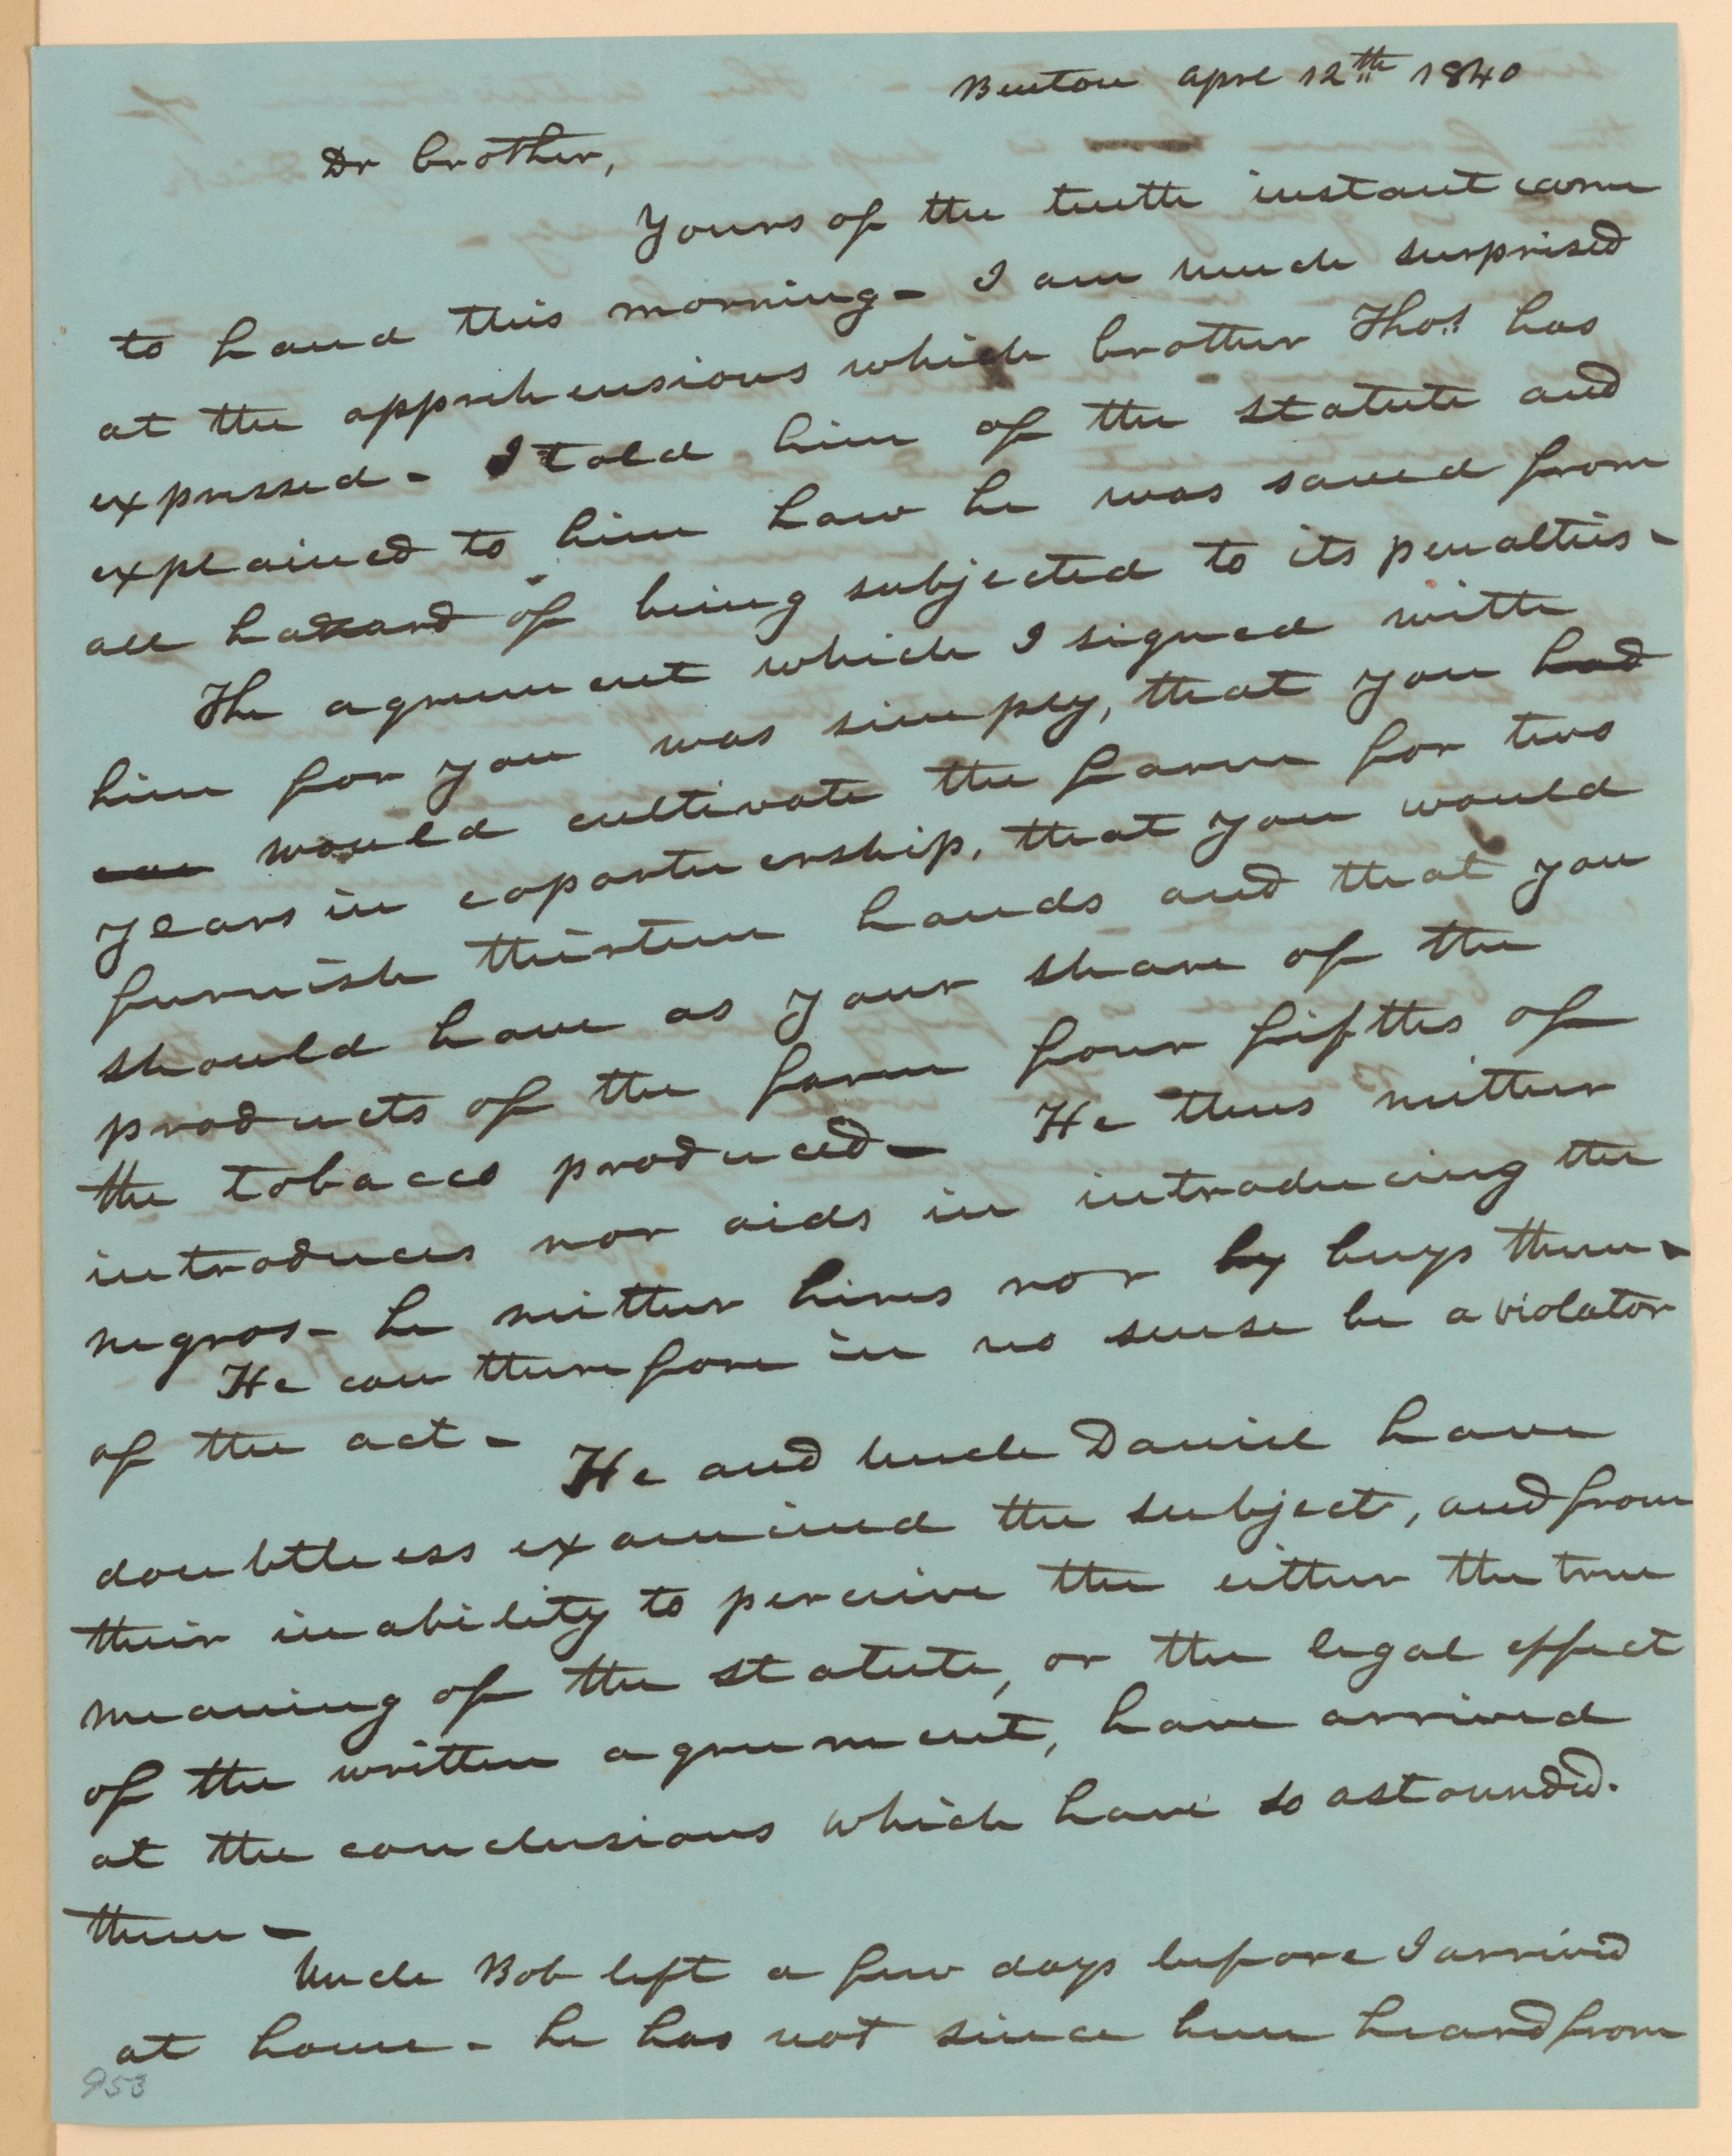 Benton Aprl 12th 1840
Dr brother,
Yours of the tenth instant came
to hand this morning - I am much surprised
at the apprehensions which brother Thos. has
expressed - I told him of the statute and
explained to him how he was saved from
all hazard of being subjected to its penalties -
The agreement which I signed with
him for you was simply, that you had
can would cultivate the farm for two
years in copartnership, that you would
furnish thirteen hands and that you
should have as your share of the
products of the farm four fifths of
the tobacco produced - He thus neither
introduces nor aids in introducing the
negros - he neither hires nor by buys them -
He can therefore in no sense be a violator
of the act - He and Uncle Daniel have
doubtless examined the subject, and from
their inability to perceive the either the true
meaning of the statute, or the legal effect
of the written agreement, have arrived
at the conclusions which have so astounded.
them -
Uncle Bob left a few days before I arrived
at home - he has not since been heard from
953